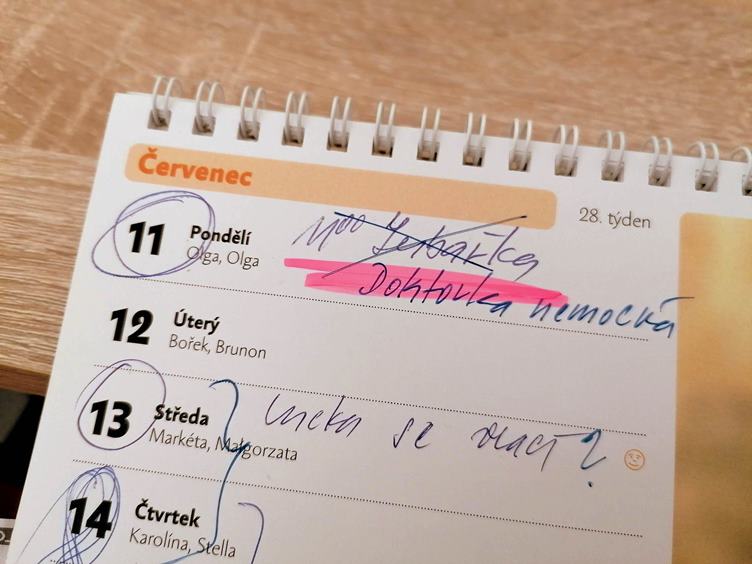 Červenec
28. týden
11 Pondělí
Olga, Olga
11⁰⁰ Zubařka
Doktorka nemocná
12 Úterý
Bořek, Brunon
13 Středa
Markéta, Małgorzata
se vrací?
14 Čtvrtek
Karolína, Stella